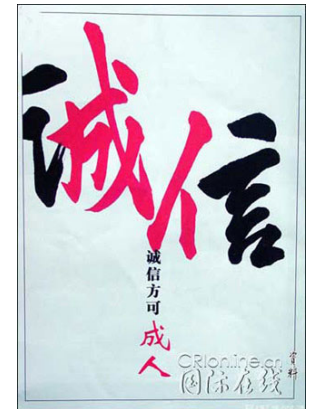 诚信
誠信方可
成人
CRIonline.cn
国际在线
资料